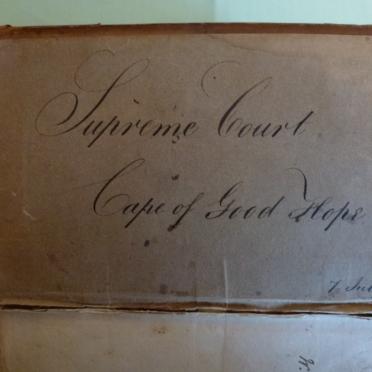 Supreme Court
Cape of Good Hope